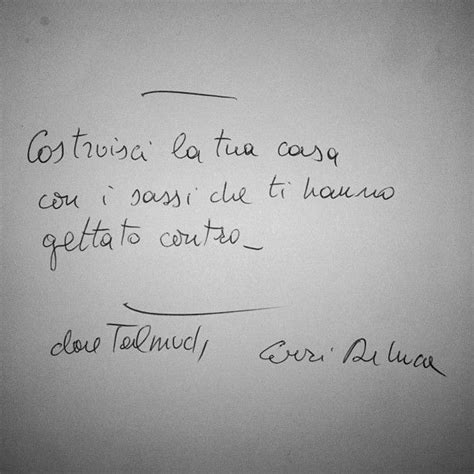 Costruisci la tua casa
con i sassi che ti hanno
gettato contro_
Talmud, Erri De Luca